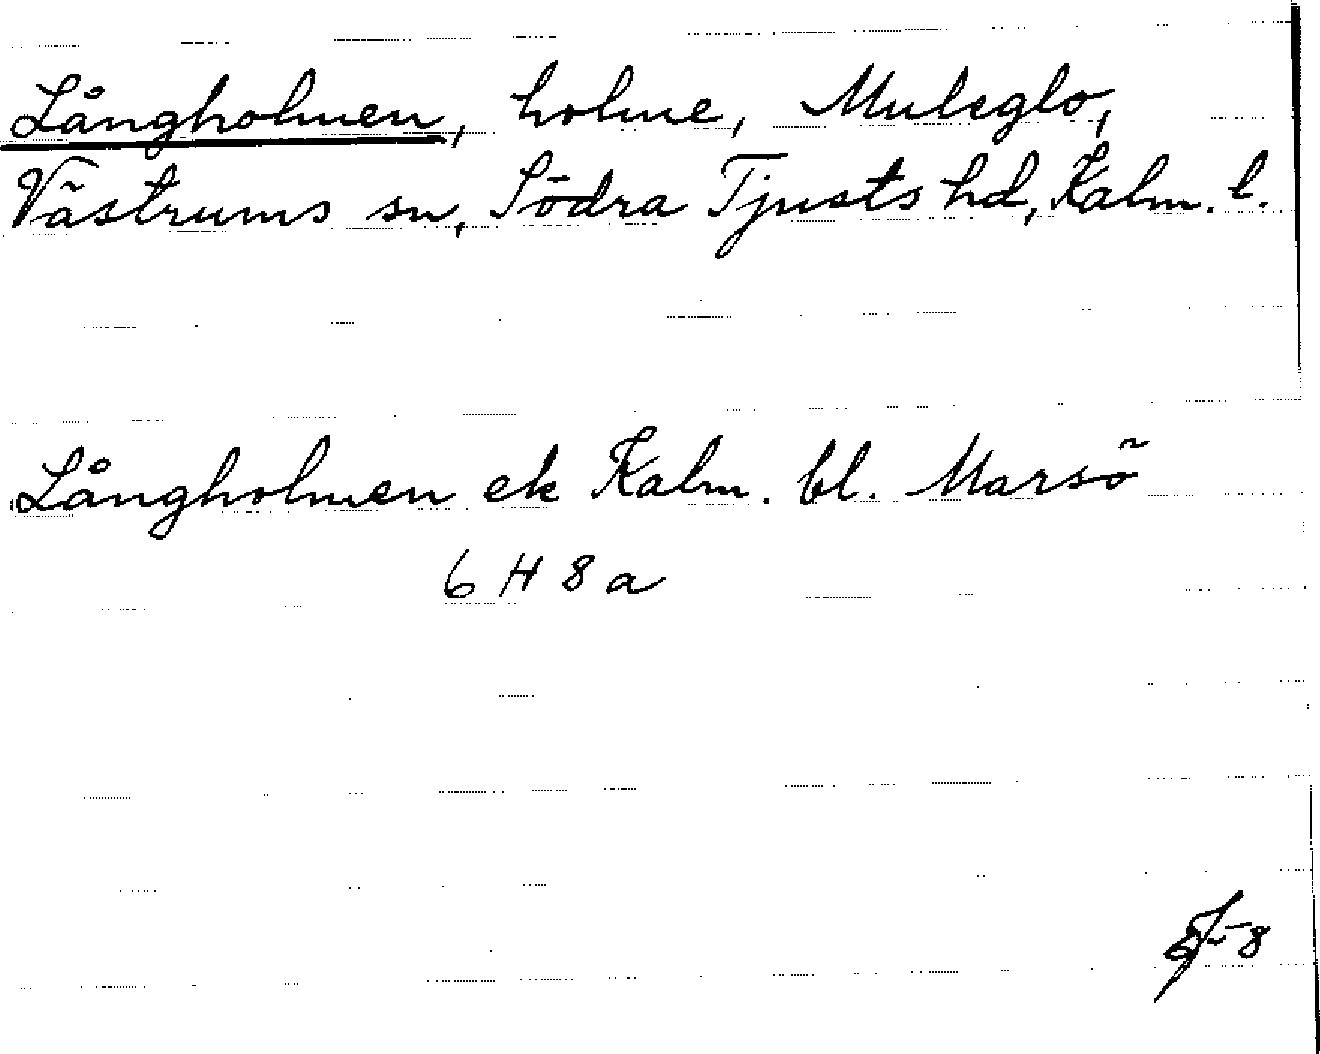 Långholmen, holme, Muleglo,
Västrums sn, Södra Tjusts hd, Kalm. l.
Långholmen ek Kalm. bl. Marsö
6 H 8 a